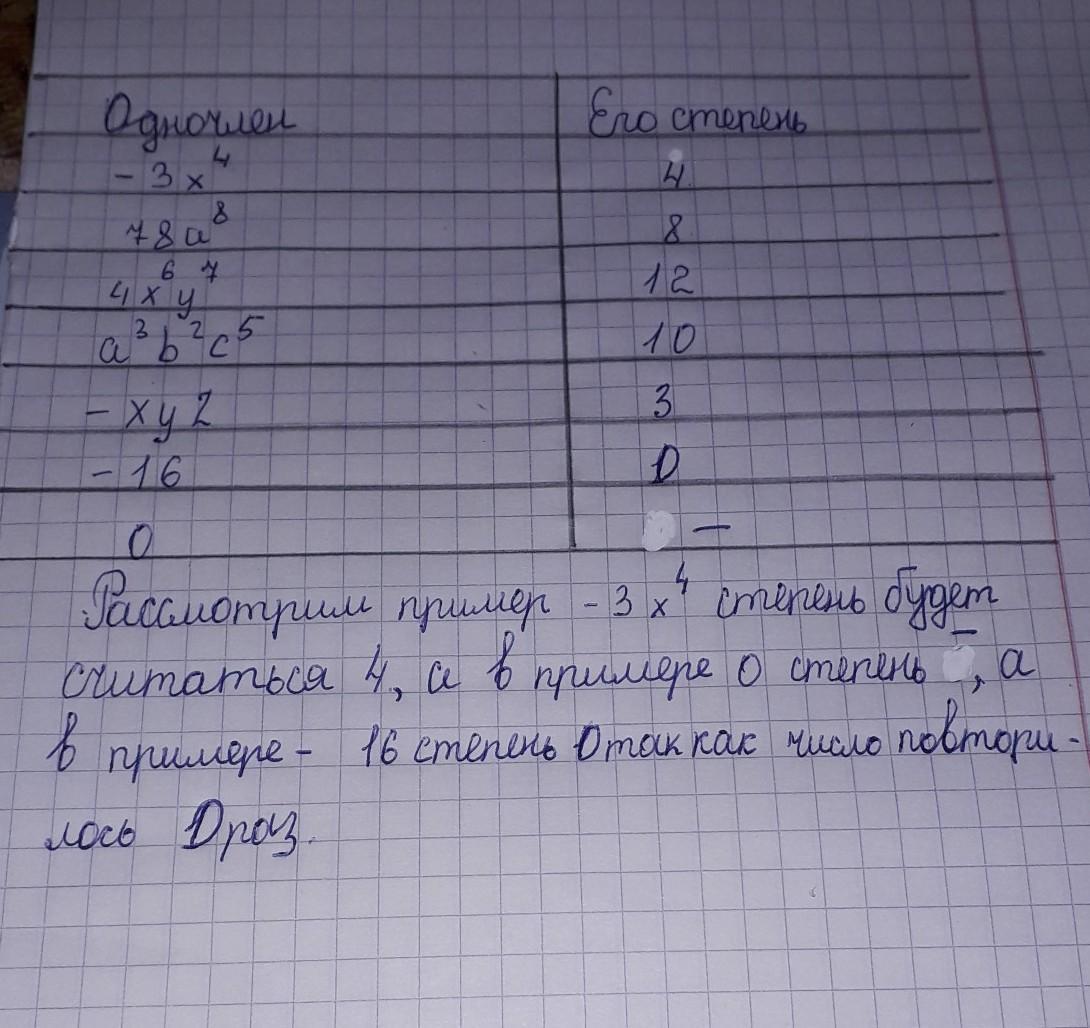 Одночлен Его степень
- 3x⁴ 4
78a⁸ 8
4x⁶y⁷ 12
a³b²c⁵ 10
- xyz 3
- 16 0
0 —
Рассмотрим пример - 3x⁴ степень будет
считаться 4, а в примере 0 степень —, а
в примере - 16 степень 0 так как число повтори-
лось 0 раз.